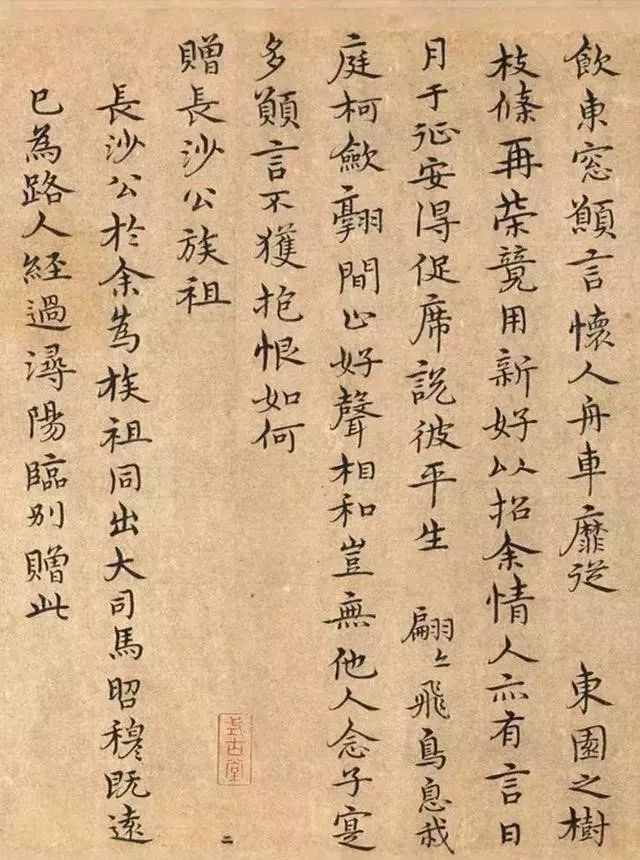 飲東窓願言懷人舟車靡從　東園之樹
枝條再榮競用新好以招余情人亦有言日
月于征安得促席說彼平生　翩々飛鳥息我
庭柯斂翮間止好聲相和豈無他人念子寔
多願言不獲抱恨如何
贈長沙公族祖
式古堂
二
長沙公於余為族祖同出大司馬昭穆既遠
已為路人經過潯陽臨別贈此